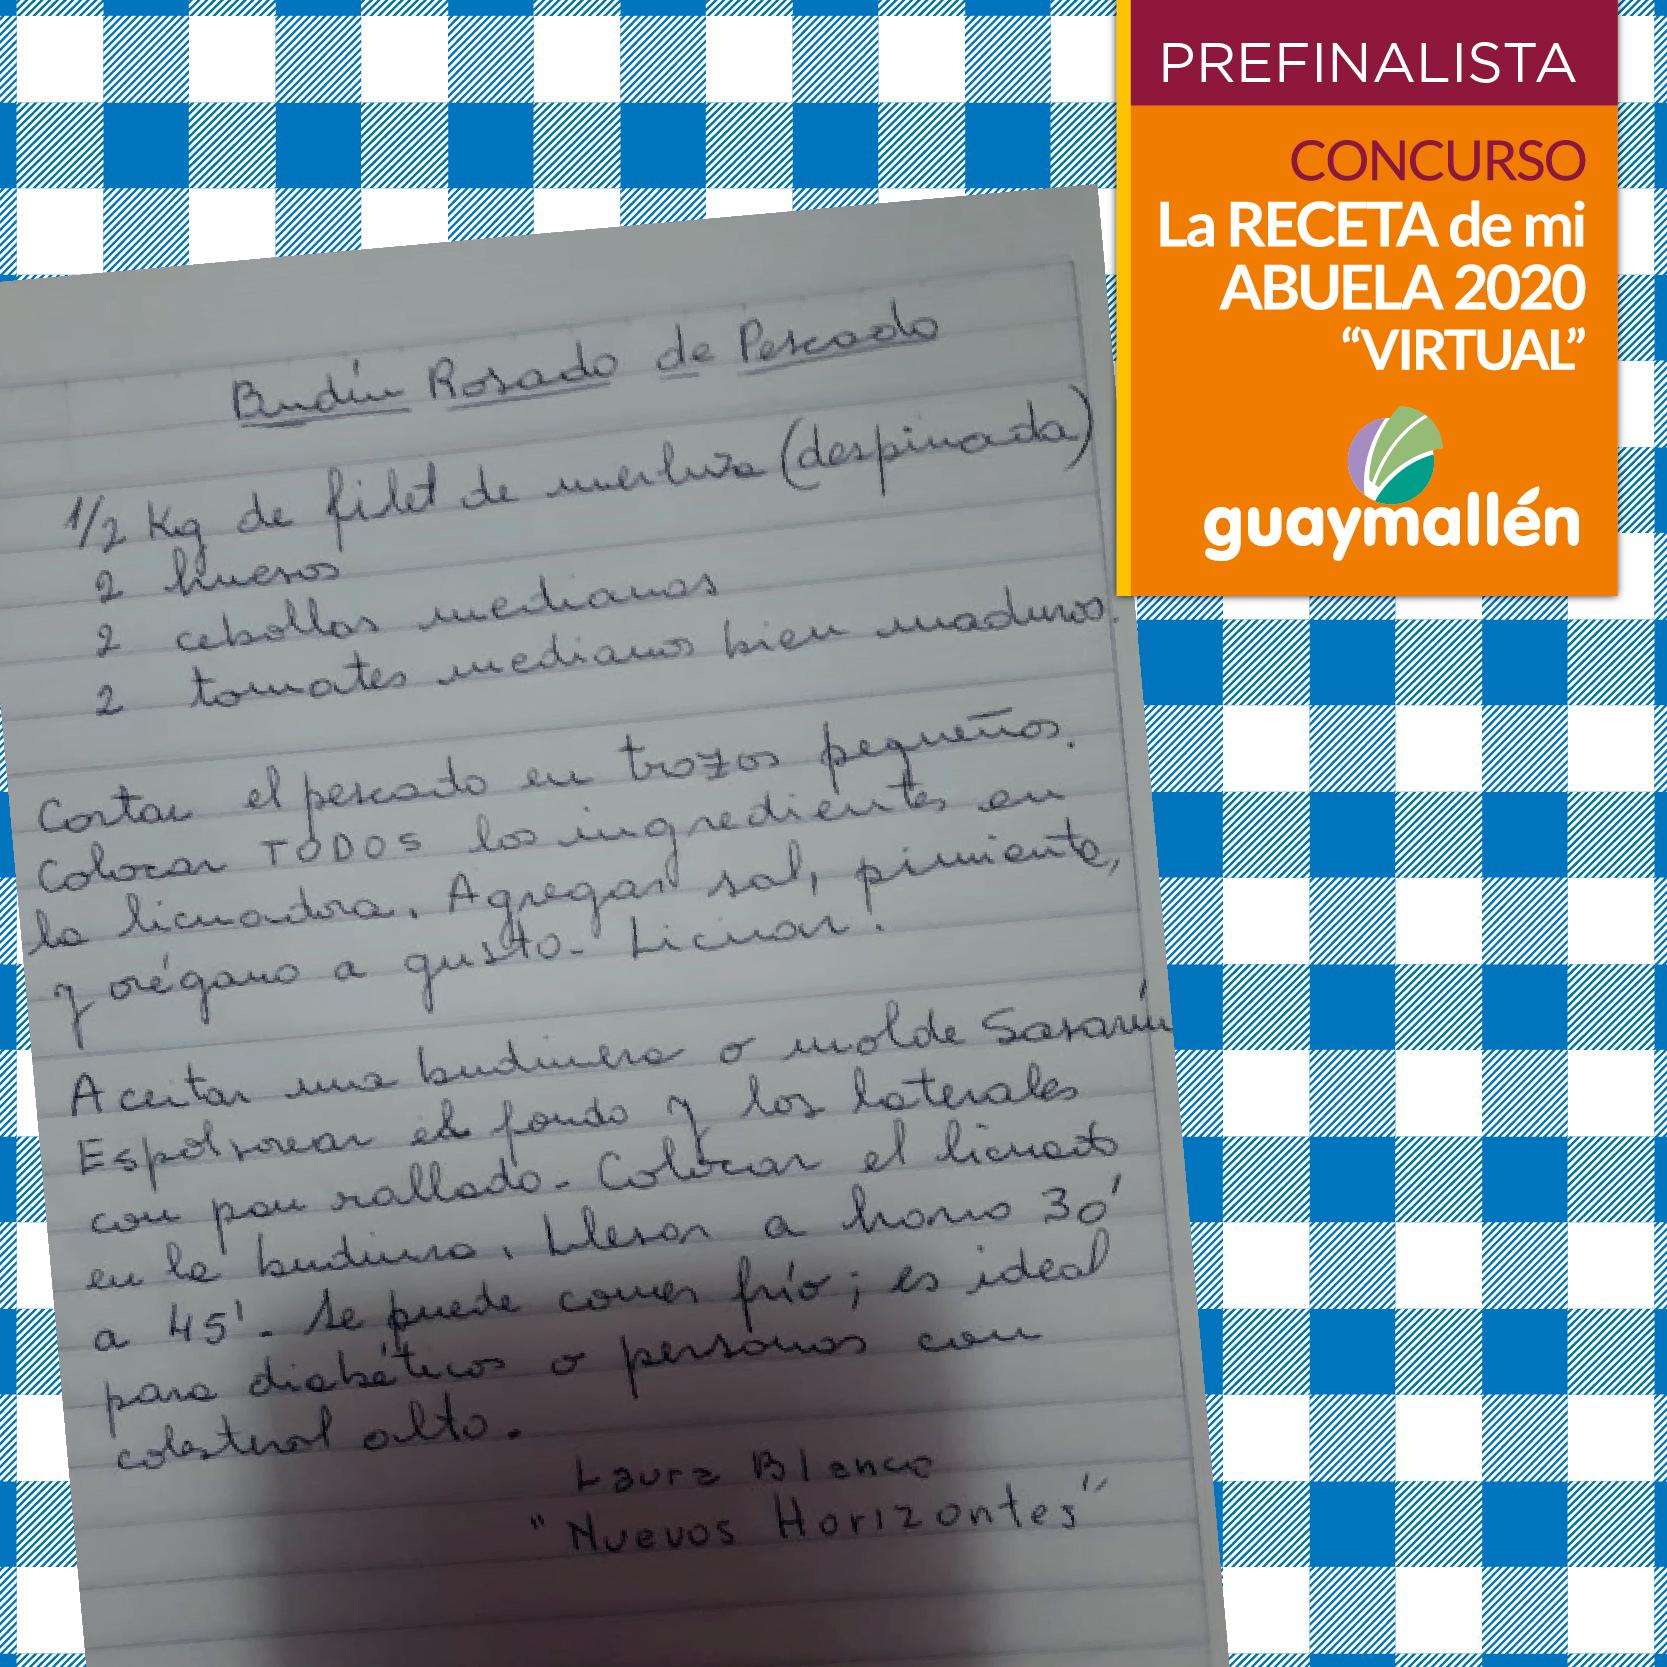 PREFINALISTA
CONCURSO
La RECETA de mi
ABUELA 2020
“VIRTUAL”
guaymallén
Budín Rosado de Pescado
1/2 Kg de filet de merluza (despinada)
2 huevos
2 cebollas medianas
2 tomates medianos bien maduros.
Cortar el pescado en trozos pequeños.
Colocar TODOS los ingredientes en
la licuadora. Agregar sal, pimienta,
y orégano a gusto. Licuar!
Aceitar una budinera o molde Savarín
Espolvorear el fondo y los laterales
con pan rallado. Colocar el licuado
en la budinera. Llevar a horno 30'
a 45'. Se puede comer frío; es ideal
para diabéticos o personas con
colesterol alto.
Laura Blanco
"Nuevos Horizontes"